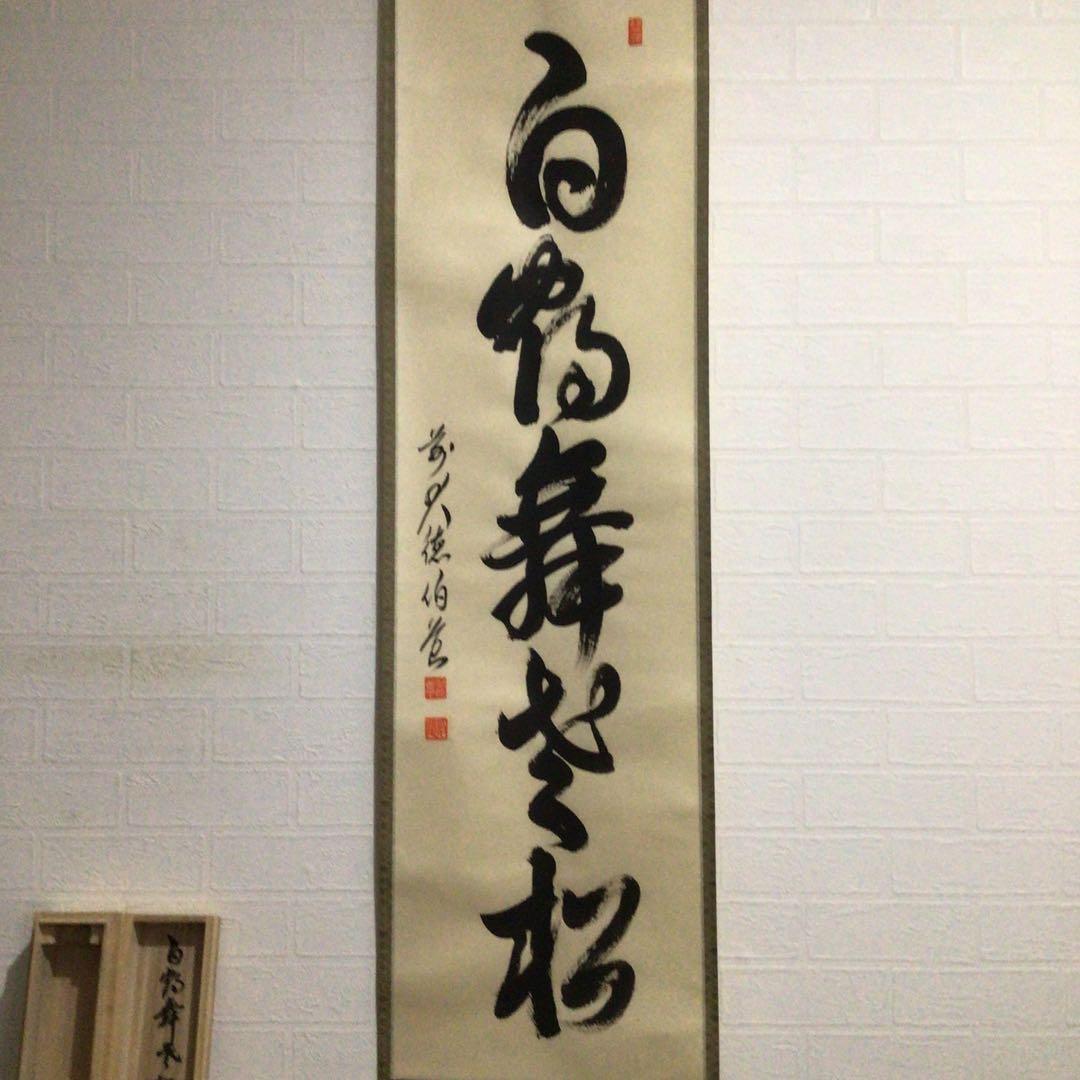 白鶴舞老松
前大徳伯
白鶴舞老